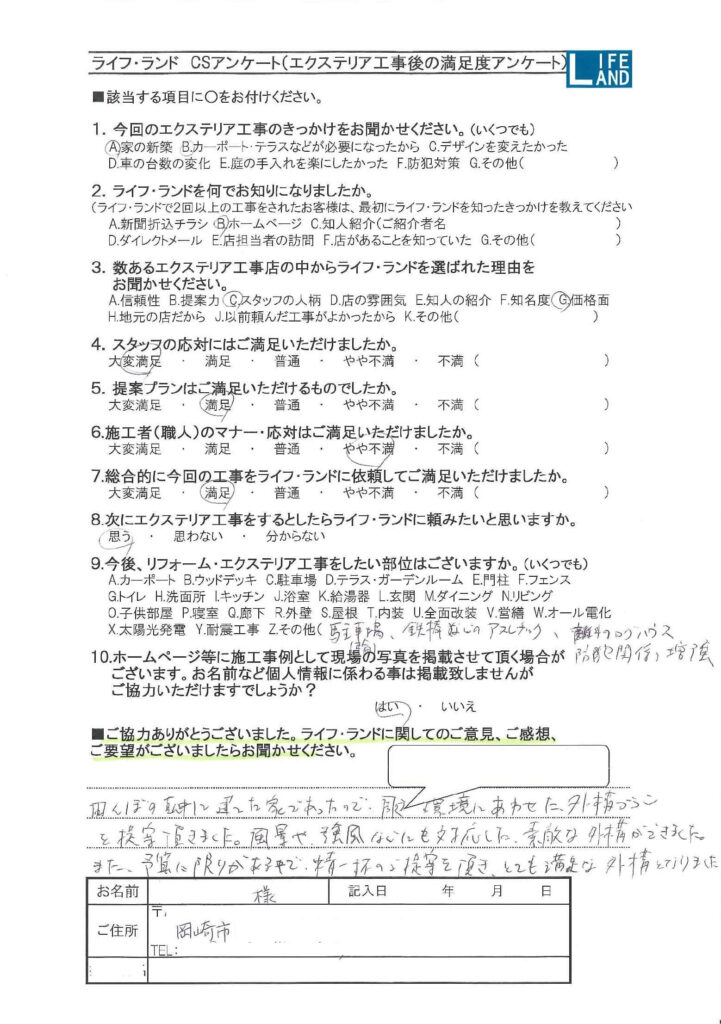 ライフ・ランド CSアンケート(エクステリア工事後の満足度アンケート)
LIFE LAND
■該当する項目に〇をお付けください。
1. 今回のエクステリア工事のきっかけをお聞かせください。(いくつでも)
A.家の新築 B.カーポート・テラスなどが必要になったから C.デザインを変えたかった
D.車の台数の変化 E.庭の手入れを楽にしたかった F.防犯対策 G.その他( )
2. ライフ・ランドを何でお知りになりましたか。
(ライフ・ランドで2回以上の工事をされたお客様は、最初にライフ・ランドを知ったきっかけを教えてください
A.新聞折込チラシ B.ホームページ C.知人紹介(ご紹介者名 )
D.ダイレクトメール E.店担当者の訪問 F.店があることを知っていた G.その他( )
3. 数あるエクステリア工事店の中からライフ・ランドを選ばれた理由を
お聞かせください。
A.信頼性 B.提案力 C.スタッフの人柄 D.店の雰囲気 E.知人の紹介 F.知名度 G.価格面
H.地元の店だから J.以前頼んだ工事がよかったから K.その他( )
4. スタッフの応対にはご満足いただけましたか。
大変満足 ・ 満足 ・ 普通 ・ やや不満 ・ 不満 ( )
5. 提案プランはご満足いただけるものでしたか。
大変満足 ・ 満足 ・ 普通 ・ やや不満 ・ 不満 ( )
6.施工者(職人)のマナー・応対はご満足いただけましたか。
大変満足 ・ 満足 ・ 普通 ・ やや不満 ・ 不満 ( )
7.総合的に今回の工事をライフ・ランドに依頼してご満足いただけましたか。
大変満足 ・ 満足 ・ 普通 ・ やや不満 ・ 不満 ( )
8.次にエクステリア工事をするとしたらライフ・ランドに頼みたいと思いますか。
思う ・ 思わない ・ 分からない
9.今後、リフォーム・エクステリア工事をしたい部位はございますか。(いくつでも)
A.カーポート B.ウッドデッキ C.駐車場 D.テラス・ガーデンルーム E.門柱 F.フェンス
G.トイレ H.洗面所 I.キッチン J.浴室 K.給湯器 L.玄関 M.ダイニング N.リビング
O.子供部屋 P.寝室 Q.廊下 R.外壁 S.屋根 T.内装 U.全面改装 V.営繕 W.オール電化
X.太陽光発電 Y.耐震工事 Z.その他( 駐車場、鉄棒などのアスレチック、 ログハウス
防犯関係、増築
10.ホームページ等に施工事例として現場の写真を掲載させて頂く場合が
ございます。お名前など個人情報に係わる事は掲載致しませんが
ご協力いただけますでしょうか?
はい ・ いいえ
■ご協力ありがとうございました。ライフ・ランドに関してのご意見、ご感想、
ご要望がございましたらお聞かせください。
田んぼの に建てた家であったので、 環境にあわせた、外構プラン
を提案頂きました。風景や、強風などにも対応した、素敵な外構ができました。
また、予算に限りがある中で、精一杯のご提案を頂き、とても満足な外構となりました
お名前 様 記入日 年 月 日
ご住所 〒 岡崎市
TEL: